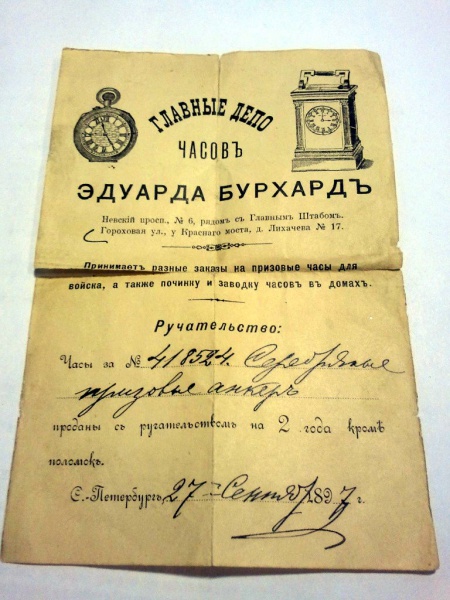 ГЛАВНЫЕ ДЕПО
ЧАСОВЪ
ЭДУАРДА БУРХАРДЪ
Невскій просп., № 6, рядомъ съ Главнымъ Штабомъ.
Гороховая ул., у Краснаго моста, д. Лихачева № 17.
Принимаетъ разные заказы на призовые часы для
войска, а также починку и заводку часовъ въ домахъ.
Ручательство:
Часы за № 418524. Серебряные
призовые анкеръ
проданы съ ругательствомъ на 2 года кромѣ
поломок.
С.-Петербургъ, 27 Сентяб 1897 г.